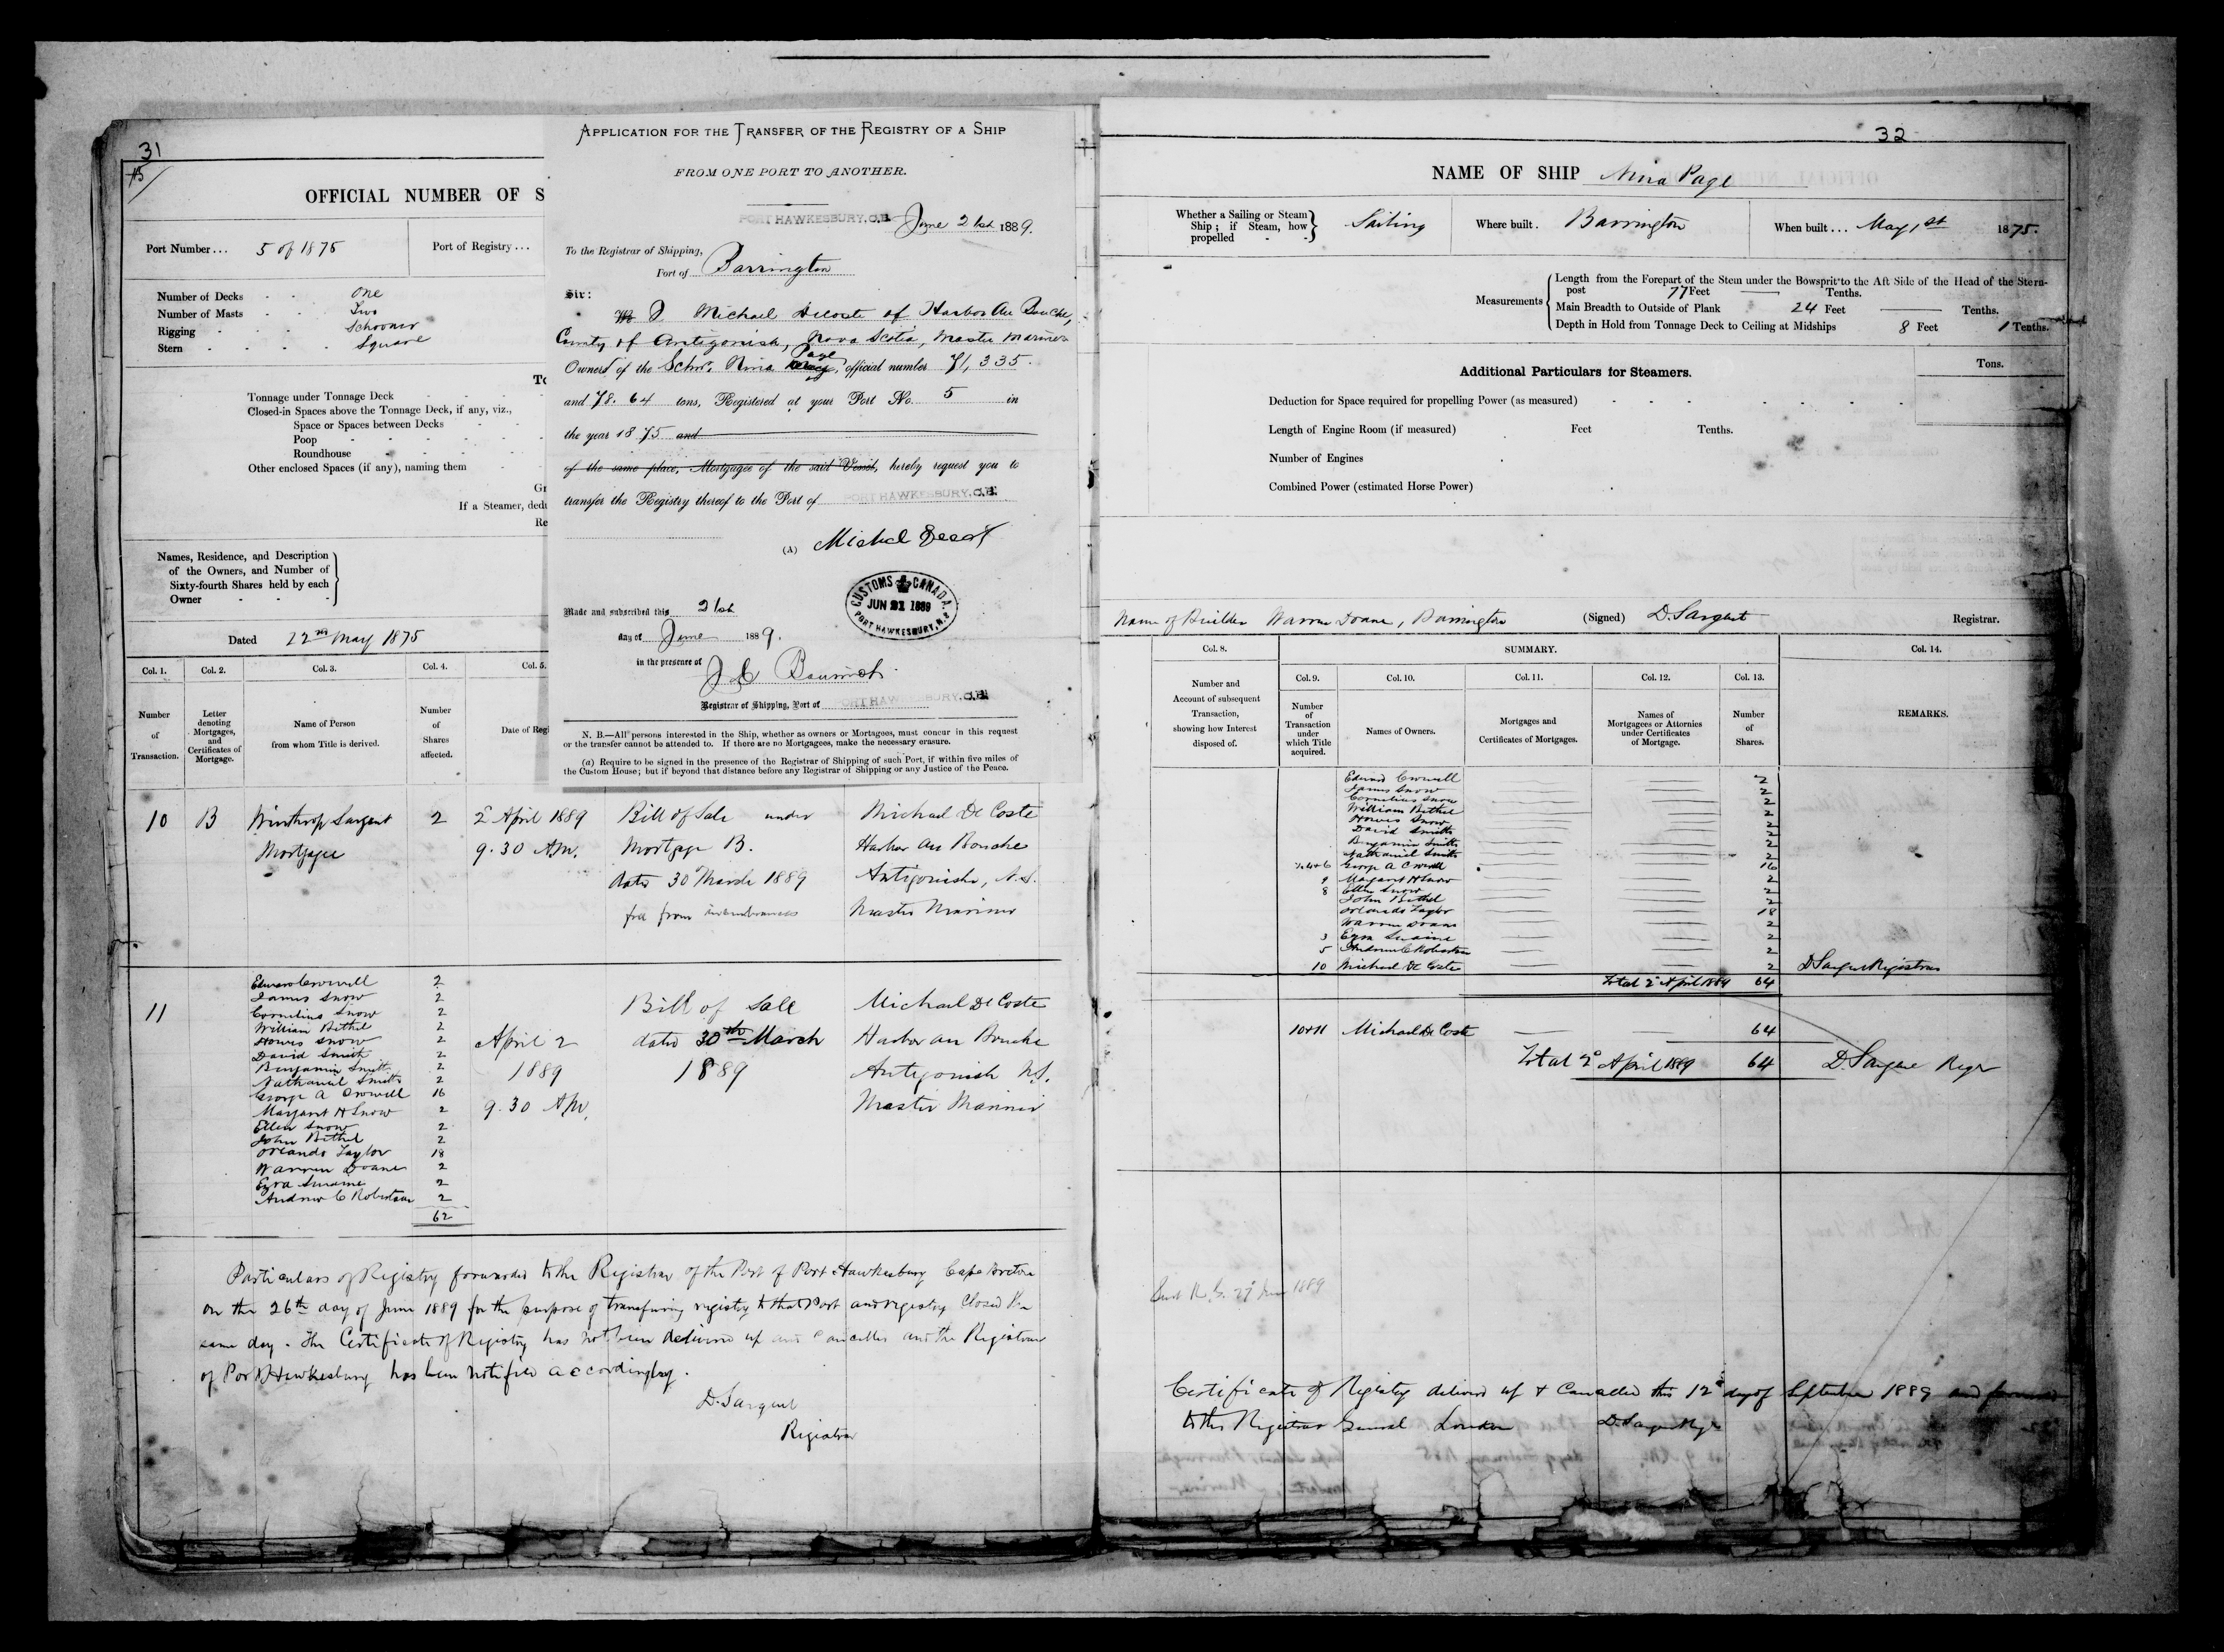 31
15
OFFICIAL NUMBER OF S
Port Number... 5 of 1875 Port of Registry...
Number of Decks - - One
Number of Masts - - Two
Rigging - - - Schooner
Stern - - - - Square
To
Tonnage under Tonnage Deck
Closed-in Spaces above the Tonnage Deck, if any, viz.,
Space or Spaces between Decks
Poop
Roundhouse
Other enclosed Spaces (if any), naming them
Gr
If a Steamer, dedu
Re
Names, Residence, and Description
of the Owners, and Number of
Sixty-fourth Shares held by each
Owner
Dated 22nd May 1875
Col. 1. Col. 2. Col. 3. Col. 4. Col. 5.
Number of Transaction.
Letter denoting Mortgages, and Certificates of Mortgage.
Name of Person from whom Title is derived.
Number of Shares affected.
Date of Regi
APPLICATION FOR THE TRANSFER OF THE REGISTRY OF A SHIP
FROM ONE PORT TO ANOTHER.
PORT HAWKESBURY, C.B. June 21st 1889.
To the Registrar of Shipping,
Port of Barrington
Sir:
I Michael Decoste of Harbor Au Bouche,
County of Antigonish, Nova Scotia, Master Mariner
Page
Owner of the Schr. Nina official number 71,335.
and 78.64 tons, Registered at your Port No. 5 in
the year 1875 and
of the same place, Mortgagee of the said Vessel, hereby request you to
transfer the Registry thereof to the Port of PORT HAWKESBURY, C.B.
(A) Michel Decost
CUSTOMS CANADA.
JUN 21 1889
PORT HAWKESBURY, N.S.
Made and subscribed this 21st
day of June 1889.
in the presence of
J C
Registrar of Shipping, Port of PORT HAWKESBURY, C.B.
N. B.—All persons interested in the Ship, whether as owners or Mortagees, must concur in this request
or the transfer cannot be attended to. If there are no Mortgagees, make the necessary erasure.
(a) Require to be signed in the presence of the Registrar of Shipping of such Port, if within five miles of
the Custom House; but if beyond that distance before any Registrar of Shipping or any Justice of the Peace.
10 B Winthrop Sargent 2 2 April 1889 Bill of Sale under Michael De Coste
Mortgagee 9.30 A.M. Mortgage B. Harbor au Bouche
dated 30 March 1889 Antigonishe, N.S.
free from incumbrances Master Mariner
11
Edward Crowell 2
James Snow 2
Cornelius Snow 2
William Bethel 2
Howes Snow 2
David Smith 2
Benjamin Smith 2
Nathaniel Smith 2
George A Crowell 16
Margaret H Snow 2
Ellen Snow 2
John Bethel 2
Orlando Taylor 18
Warren Doane 2
Ezra Swaine 2
Andrew C Robertson 2
62
April 2
1889
9.30 A.M.
Bill of Sale
dated 30th March
1889
Michael De Coste
Harbor au Bouche
Antigonish N.S.
Master Mariner
Particulars of Registry forwarded to the Registrar of the Port of Port Hawkesbury Cape Breton
on the 26th day of June 1889 for the purpose of transfering registry to that Port and registry Closed the
same day. The Certificate of Registry has not been delivered up and Cancelled and the Registrar
of Port Hawkesbury has been notified accordingly.
D. Sargent
Registrar
32
NAME OF SHIP Nina Page
Whether a Sailing or Steam
Ship; if Steam, how
propelled - - Sailing
Where built. Barrington
When built... May 1st 1875.
Measurements
Length from the Forepart of the Stem under the Bowsprit to the Aft Side of the Head of the Stern-
post 77 Feet — Tenths.
Main Breadth to Outside of Plank 24 Feet — Tenths.
Depth in Hold from Tonnage Deck to Ceiling at Midships 8 Feet 1 Tenths.
Additional Particulars for Steamers.
Tons.
Deduction for Space required for propelling Power (as measured)
Length of Engine Room (if measured) Feet Tenths.
Number of Engines
Combined Power (estimated Horse Power)
Name of Builder Warren Doane, Barrington (Signed) D. Sargent Registrar.
Col. 8. SUMMARY. Col. 14.
Col. 9. Col. 10. Col. 11. Col. 12. Col. 13.
Number and Account of subsequent Transaction, showing how Interest disposed of.
Number of Transaction under which Title acquired.
Names of Owners.
Mortgages and Certificates of Mortgages.
Names of Mortgagees or Attornies under Certificates of Mortgage.
Number of Shares.
REMARKS.
Edward Crowell 2
James Snow 2
Cornelius Snow 2
William Bethel 2
Howes Snow 2
David Smith 2
Benjamin Smith 2
Nathaniel Smith 2
George A Crowell 16
Margaret H Snow 2
8 Ellen Snow 2
John Bethel 2
Orlando Taylor 18
Warren Doane 2
3 Ezra Swaine 2
5 Andrew C Robertson 2
10 Michael De Coste 2 D Sargent Registrar
Total 2 April 1889 64
10+11 Michael De Coste — — 64
Total 2 April 1889 64 D. Sargent Regr
27 June 1889
Certificate of Registry delivered up & Cancelled this 12 day of September 1889 and forwarded
to the Registrar General London D. Sargent Regr